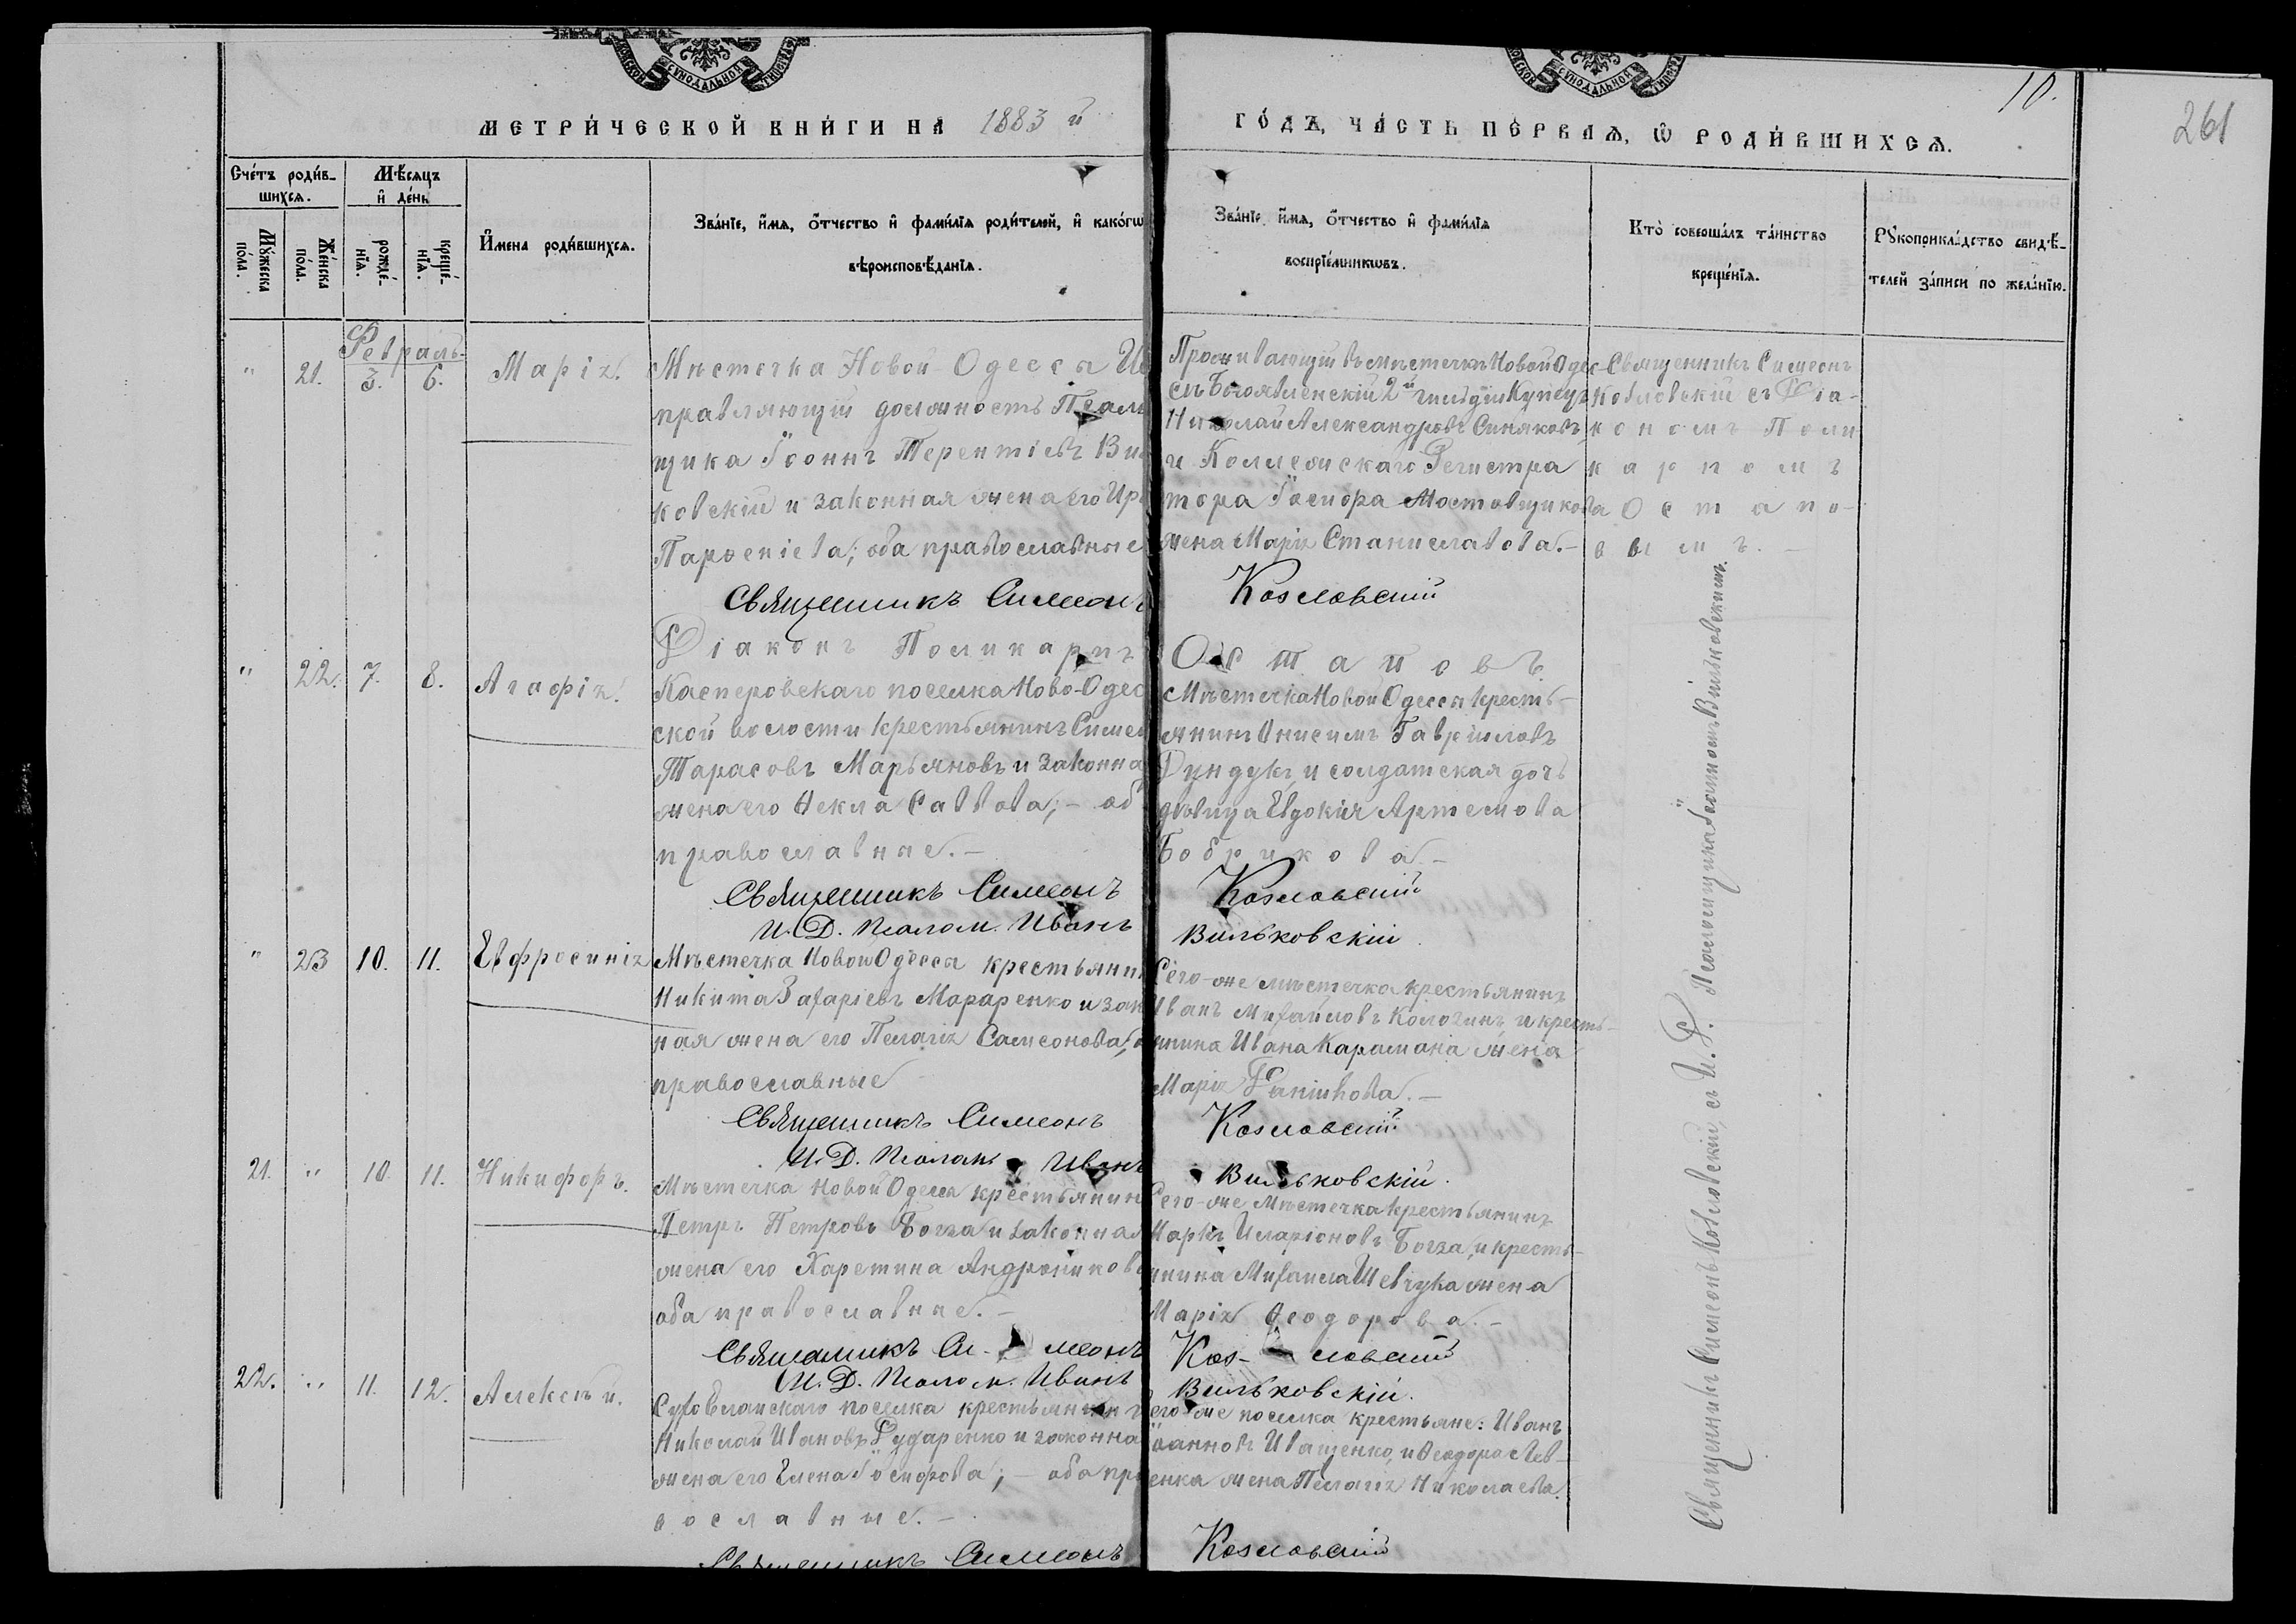 МОСКОВСКОЙ СѴНОДАЛЬНОЙ ТИПОГРАФ
СКОВСКОЙ СѴНОДАЛЬНОЙ ТИПОГРА
10.
261
МЕТРИ́ЧЕСКОЙ КНИ́ГИ НА̀ 1883 й
ГО́ДЪ, ЧА́СТЬ ПЕ́РВАѦ, Ѡ РОДИ́ВШИХСѦ.
Сче́тъ роди́в-
шихсѧ.
Мѣ́сѧцъ
и҆ де́нь
Мꙋ́жеска
по́ла.
Же́нска
по́ла.
рожде́-
нїѧ.
креще́-
нїѧ.
И҆мена роди́вшихсѧ.
Зва́нїе, и҆́мѧ, ѻ҆́тчество и҆ фами́лїѧ роди́телей, и҆ како́гѡ
вѣроисповѣ́данїѧ.
Зва́нїе, и҆́мѧ, ѻ҆́тчество и҆ фами́лїѧ
воспрїе́мникѡвъ.
Кто̀ соверша́лъ та́инство
креще́нїѧ.
Рꙋкоприкла́дство свидѣ́-
телей за́писи по жела́нїю.
Февраль.
" 21. 3. 6. Марія.
Мѣстечка Новой-Одесса Ис
правляющій должность Псалм
щика Іоаннъ Терентіевъ Вил
ковскій и законная жена его Ири
Парѳеніева; оба православные
Священникъ Симеонъ
Діаконъ Поликарпъ
Проживающій въ мѣстечкѣ Новой Одес-
сѣ Богоявленскій 2й гильдіи Купецъ
Николай Александровъ Синяковъ,
и Коллежскаго Регистра
тора Іосифа Мостовщикова
жена Марія Станиславова.-
Козловскій
Остаповъ
Священникъ Симеонъ
Козловскій съ Діа-
кономъ Поли
карпомъ
Остапо-
вымъ.-
" 22. 7. 8. Агафія.
Касперовскаго поселка Ново-Одес
ской волости крестьянинъ Симео
Тарасовъ Марьяновъ и законна
жена его Ѳекла Саввова;- об
православные.-
Священникъ Симеонъ
И. Д. Псалом. Иванъ
Мѣстечка Новой Одессы кресть-
янинъ Онисимъ Гавріиловъ
Дундукъ, и солдатская дочь
дѣвица Евдокія Артемова
Бобрикова.-
Козловскій
Вильковскій.
" 23 10. 11. Евфросинія
Мѣстечка Новой Одесса крестьянин
Никита Захаріевъ Мараренко и зак
ная жена его Пелагія Самсонова; о
православные
Священникъ Симеонъ
И. Д. Псалом. Иванъ
Сего-же мѣстечка крестьянинъ
Иванъ Михайловъ Колочинъ, и кресть-
янина Ивана Карамана жена
Марія Даніилова.-
Козловскій
Вильковскій.
21. " 10. 11. Никифоръ.
Мѣстечка Новой Одесса крестьянин
Петръ Петровъ Богза и законная
жена его Харетина Андроникова
оба православные.-
Священникъ Си-меонъ
И. Д. Псалом. Иванъ
Сего-же Мѣстечка крестьянинъ
Маркъ Иларіоновъ Богза, и кресть-
янина Михаила Шевчука жена
Марія Ѳеодорова.-
Коз-ловскій
Вильковскій.
22. " 11. 12. Алексѣй.
Сухоеланскаго поселка крестьянинъ
Николай Ивановъ Дударенко и законна
жена его Елена Іосифова;- оба пра
вославные.-
Священникъ Симеонъ
Сего же поселка крестьяне: Иванъ
Іоанновъ Иващенко, и Ѳеодора Лев-
енка жена Пелагія Николаева.
Козловскій
Священникъ Симеонъ Козловскій, съ И. Д. Псаломщика Іоанномъ Вильковскимъ.